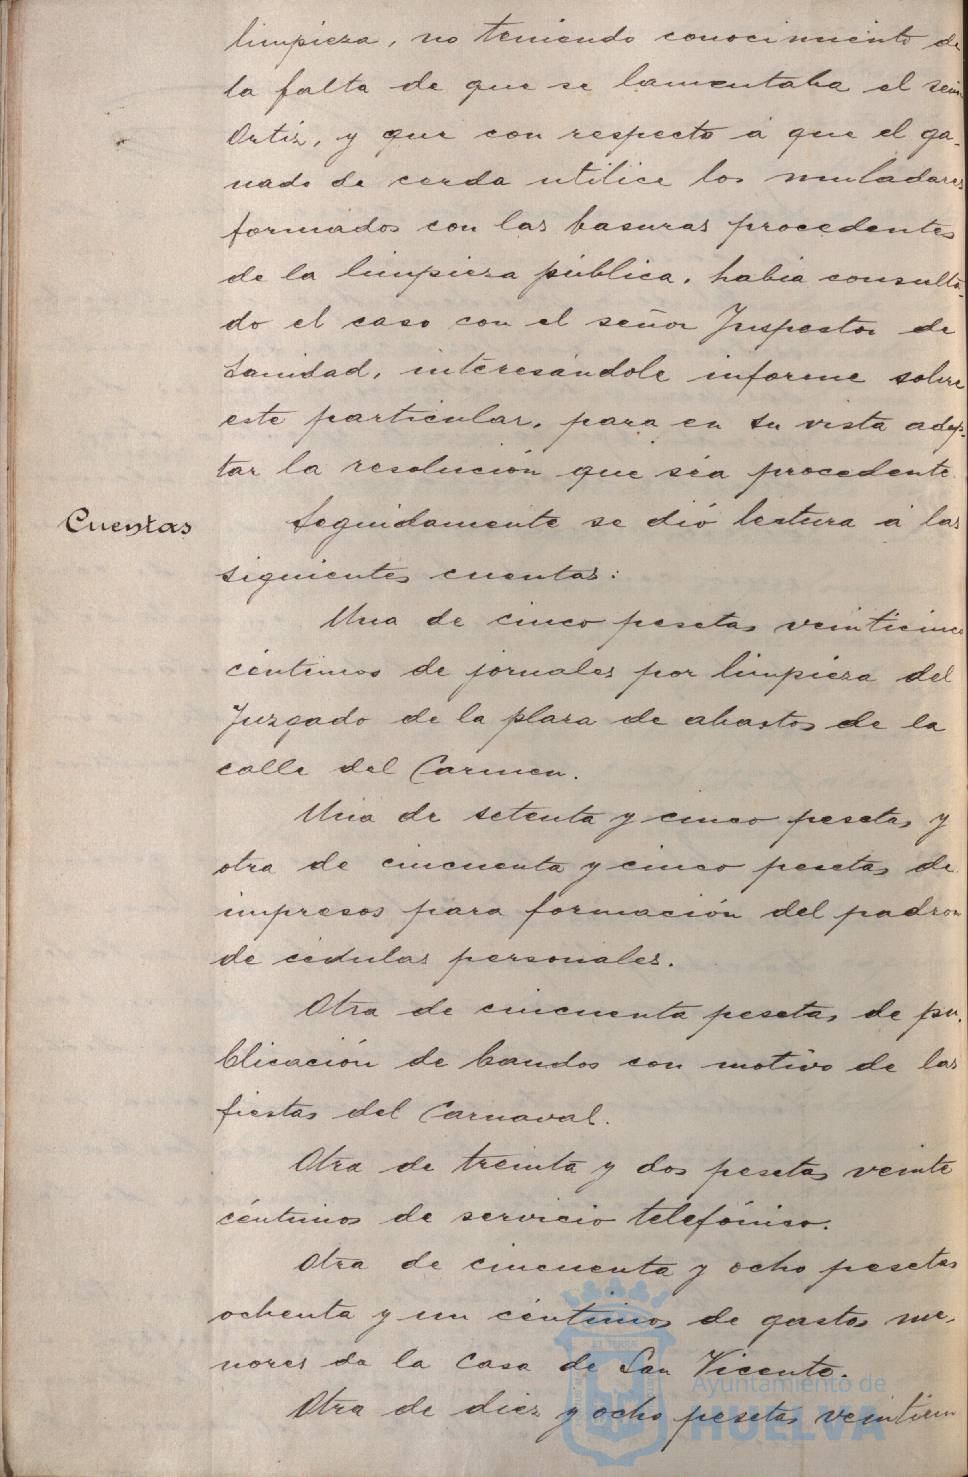 limpieza, no teniendo conocimiento de
la falta de que se lamentaba el señor
Ortiz, y que con respecto á que el ga-
nado de cerda utilice los muladares
formados con las basuras procedentes
de la limpieza pública, habia consulta-
do el caso con el señor Inspector de
Sanidad, interesándole informe sobre
este particular, para en su vista adop-
tar la resolución que sea procedente.
Cuentas
Seguidamente se dió lectura á las
siguientes cuentas:
Una de cinco pesetas veinticinco
céntimos de jornales por limpieza del
Juzgado de la plaza de abastos de la
calle del Carmen.
Una de setenta y cinco pesetas y
otra de cincuenta y cinco pesetas de
impresos para formación del padron
de cédulas personales.
Otra de cincuenta pesetas de pu-
blicación de bandos con motivo de las
fiestas del Carnaval.
Otra de treinta y dos pesetas veinte
céntimos de servicio telefónico.
Otra de cincuenta y ocho pesetas
ochenta y un céntimos de gastos me-
nores de la Casa de San Vicente.
Otra de diez y ocho pesetas
Ayuntamiento de
HUELVA